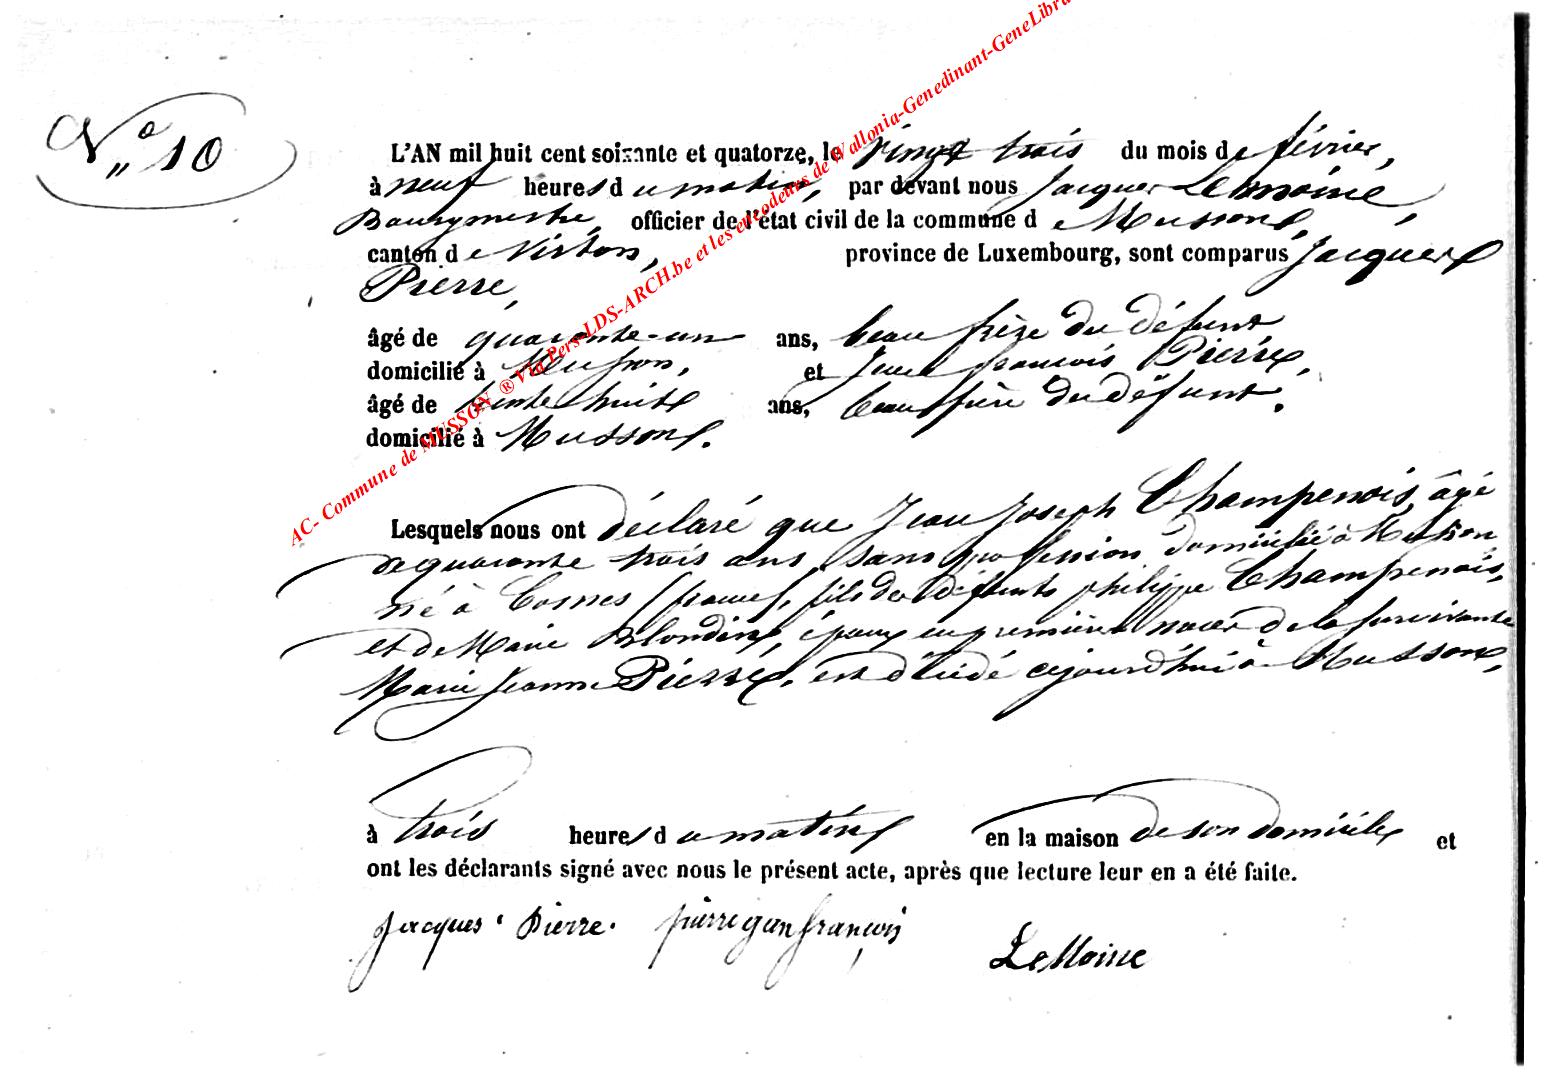 N° 10
L'AN mil huit cent soixante et quatorze, le vingt trois du mois de février,
à neuf heures du matin, par devant nous Jacques Lemoine,
Bourgmestre, officier de l'état civil de la commune de Musson,
canton de Virton, province de Luxembourg, sont comparus Jacques
Pierre,
âgé de quarante-un ans, beau frère du défunt
domicilié à Musson, et Jean françois Pierre,
âgé de trente huit ans, beau frère du défunt.
domicilié à Musson.
Lesquels nous ont déclaré que Jean Joseph Champenois, âgé
de quarante trois ans, sans profession domicilié à Musson
né à Cosnes (france), fils de défunts philippe Champenois,
et de Marie Blondin, époux en premières noces de la survivante
Marie Jeanne Pierre, est décédé cejourd'hui à Musson,
à trois heures du matin en la maison de son domicile et
ont les déclarants signé avec nous le présent acte, après que lecture leur en a été faite.
Jacques Pierre. pierre jan françois
LeMoine
AC- Commune de MUSSON ® Via Pers-LDS-ARCH.be et les encodeurs de Wallonia-Genedinant-GeneLibra